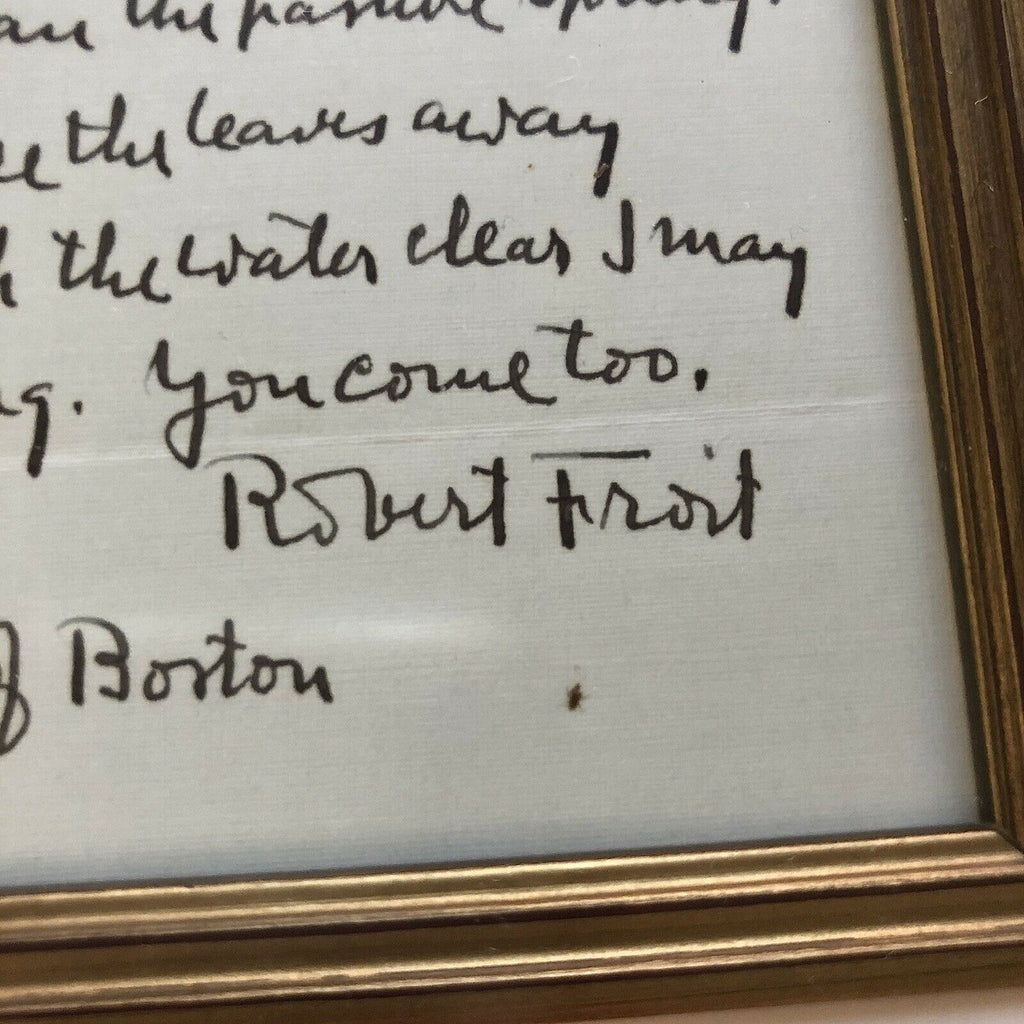 the pasture spring.
the leaves away
the water clear I may
You come too.
Robert Frost
Boston